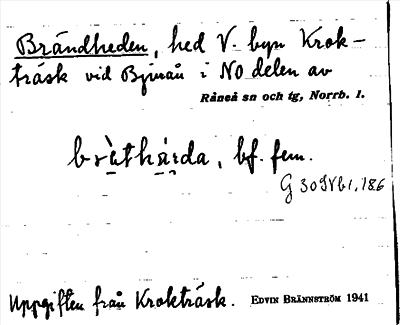 Brändheden, hed V. byn Krok-
träsk vid Bjurån i NO delen av
Råneå sn och tg, Norrb. l.
bràthạ̀rda, bf. fem.
G 30 Nb1.186
Uppgiften från Krokträsk. EDVIN BRÄNNSTRÖM 1941